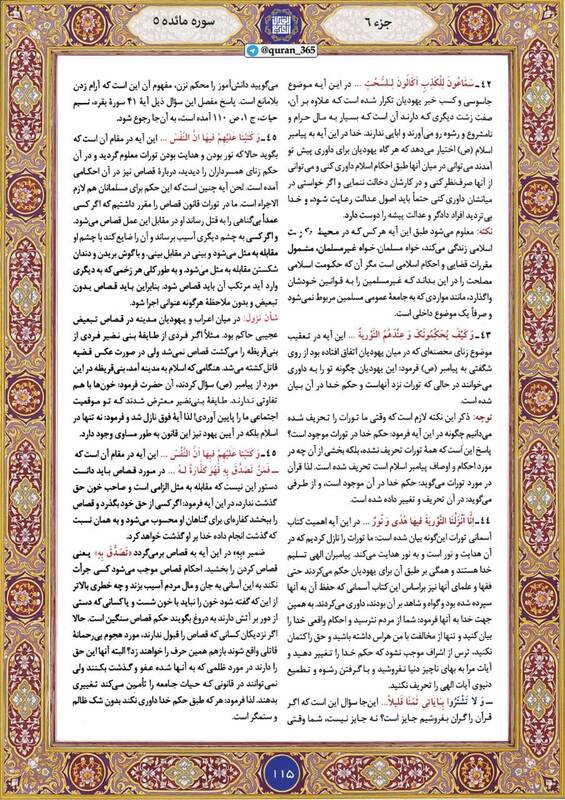 جزء ۶
سوره مائده ۵
@quran_365
۴۲ـ سَمّاعُونَ لِلْکَذِبِ اَکّالُونَ لِلسُّحْتِ ... در این آیه موضوع
جاسوسی و کسب خبر یهودیان تکرار شده است که علاوه بر آن،
صفت زشت دیگری که دارند آن است که بسیار به مال حرام و
نامشروع و رشوه رو می‌آورند و ابایی ندارند. خدا در این آیه به پیامبر
اسلام (ص) اختیار می‌دهد که هر گاه یهودیان برای داوری پیش تو
آمدند می‌توانی در میان آنها طبق احکام اسلام داوری کنی و می‌توانی
از آنها صرف‌نظر کنی و در کارشان دخالت ننمایی و اگر خواستی در
میانشان داوری کنی حتماً باید اصول عدالت رعایت شود، و خدا
بی‌تردید افراد دادگر و عدالت پیشه را دوست دارد.
نکته: معلوم می‌شود طبق این آیه هر کس که در محیط
اسلامی زندگی می‌کند، خواه مسلمان، خواه غیرمسلمان، مشمول
مقررات قضایی و احکام اسلامی است مگر آن که حکومت اسلامی
مصلحت را در این بداند که غیرمسلمین را به قوانین خودشان
واگذارد، مانند مواردی که به جامعهٔ عمومی مسلمین مربوط نمی‌شود
و صرفاً یک موضوع داخلی است.
۴۳ـ وَ کَیْفَ یُحَکِّمُونَکَ وَ عِنْدَهُمُ التَّوْریةُ ... این آیه در تعقیب
موضوع زنای محصنه‌ای که در میان یهودیان اتفاق افتاده بود از روی
شگفتی به پیامبر (ص) فرمود: این یهودیان چگونه تو را به داوری
می‌خوانند در حالی که تورات نزد آنهاست و حکم خدا در آن بیان
شده است.
توجه: ذکر این نکته لازم است که وقتی ما تورات را تحریف شده
می‌دانیم چگونه در این آیه فرمود: حکم خدا در تورات موجود است؟
پاسخ این است که همهٔ تورات تحریف نشده، بلکه بخشی از آن چه در
مورد احکام و اوصاف پیامبر اسلام است تحریف شده است. لذا قرآن
در مورد تورات می‌گوید: حکم خدا در آن موجود است، و از طرفی
می‌گوید: در آن تحریف و تغییر داده شده است.
۴۴ـ اِنّا اَنْزَلْنَا التَّوْریةَ فیها هُدًی وَ نُورٌ ... در این آیه اهمیت کتاب
آسمانی تورات این‌گونه بیان شده است: ما تورات را نازل کردیم که در
آن هدایت و نور است و به نور هدایت می‌کند. پیامبران الهی تسلیم
خدا هستند و همگی بر طبق آن برای یهودیان حکم می‌کردند حتی
فقها و علمای آنها نیز براساس این کتاب آسمانی که حفظ آن به آنها
سپرده شده بود و گواه و شاهد بر آن بودند، داوری می‌کردند. به همین
جهت خدا به آنها فرمود: شما از مردم نترسید و احکام واقعی خدا را
بیان کنید و تنها از مخالفت با من هراس داشته باشید و حق را کتمان
نکنید، ترس از اشراف موجب نشود که حکم خدا را تغییر دهید و
آیات مرا به بهای ناچیز دنیا نفروشید و با گرفتن رشوه و تطمیع
دنیوی آیات الهی را تحریف نکنید.
ـ وَ لا تَشْتَرُوا بِایاتی ثَمَنًا قَلیلًا... این‌جا سؤال این است که اگر
قرآن را گران بفروشیم جایز است؟ نه جایز نیست، شما وقتی
می‌گویید دانش‌آموز را محکم نزن، مفهوم آن این است که آرام زدن
بلامانع است. پاسخ مفصل این سؤال ذیل آیهٔ ۴۱ سورهٔ بقره، نسیم
حیات، ج ۱، ص ۱۱۰ آمده است، به آن‌جا رجوع شود.
۴۵ـ وَ کَتَبْنا عَلَیْهِمْ فیها اَنَّ النَّفْسَ ... این آیه در مقام آن است که
بگوید حالا که نور بودن و هدایت بودن تورات معلوم گردید و در آن
حکم زنای همسرداران را دیدید، دربارهٔ قصاص نیز در آن احکامی
آمده است. لحن آیه چنین است که این حکم برای مسلمانان هم لازم
الاجراء است. ما در تورات قانون قصاص را مقرر داشتیم که اگر کسی
عمداً بی‌گناهی را به قتل رساند او در مقابل این عمل قصاص می‌شود.
و اگر کسی به چشم دیگری آسیب برساند و آن را ضایع کند با چشم او
مقابله به مثل می‌شود و بینی در مقابل بینی. و با گوش بریدن و دندان
شکستن مقابله به مثل می‌شود. و به طور کلی هر زخمی که به دیگری
وارد آید مرتکب آن باید قصاص شود. بنابراین باید قصاص بدون
تبعیض و بدون ملاحظهٔ هرگونه عنوانی اجرا شود.
شأن نزول: در میان اعراب و یهودیان مدینه در قصاص تبعیض
عجیبی حاکم بود. مثلاً اگر فردی از طایفهٔ بنی نضیر فردی از
بنی‌قریظه را می‌کشت قصاص نمی‌شد ولی در صورت عکس قضیه
قاتل کشته می‌شد. هنگامی که اسلام به مدینه آمد، بنی‌قریظه در این
مورد از پیامبر (ص) سؤال کردند، آن حضرت فرمود: خون‌ها با هم
تفاوتی ندارند. طایفهٔ بنی‌نضیر معترض شدند که تو موقعیت
اجتماعی ما را پایین آوردی! لذا آیهٔ فوق نازل شد و فرمود: نه تنها در
اسلام بلکه در آیین یهود نیز این قانون به طور مساوی وجود دارد.
۴۵ـ وَ کَتَبْنا عَلَیْهِمْ فیها اَنَّ النَّفْسَ ... این آیه در مقام آن است که
ـ فَمَنْ تَصَدَّقَ بِهِ فَهُوَ کَفّارَةٌ لَهُ ... در مورد قصاص باید دانست
دستور این نیست که مقابله به مثل الزامی است و صاحب خون حق
گذشت ندارد، در این آیه فرمود: اگر کسی از حق خود بگذرد و قصاص
را ببخشد کفاره‌ای برای گناهان او محسوب می‌شود و به همان نسبت
که گذشت انجام داده خدا بر او گذشت خواهد کرد.
ضمیر «بِهِ» در این آیه به قصاص برمی‌گردد «تَصَدَّقَ بِهِ» یعنی
قصاص کردن را بخشید. احکام قصاص موجب می‌شود کسی جرأت
نکند به این آسانی به جان و مال مردم آسیب بزند و چه خطری بالاتر
از این که گفته شود خون را نباید با خون شست و پاکانی که دستی
از دور بر آتش دارند به دروغ بگویند حکم قصاص سنگین است. حالا
اگر نزدیکان کسانی که قصاص را قبول ندارند، مورد هجوم بی‌رحمانهٔ
قاتلی واقع شوند بازهم همین حرف را خواهند زد؟ البته آنها این حق
را دارند در مورد ظلمی که به آنها شده عفو و گذشت بکنند ولی
نمی‌توانند در قانونی که حیات جامعه را تأمین می‌کند تغییری
بدهند. لذا فرمود: هر که طبق حکم خدا داوری نکند بدون شک ظالم
و ستمگر است.
۱۱۵